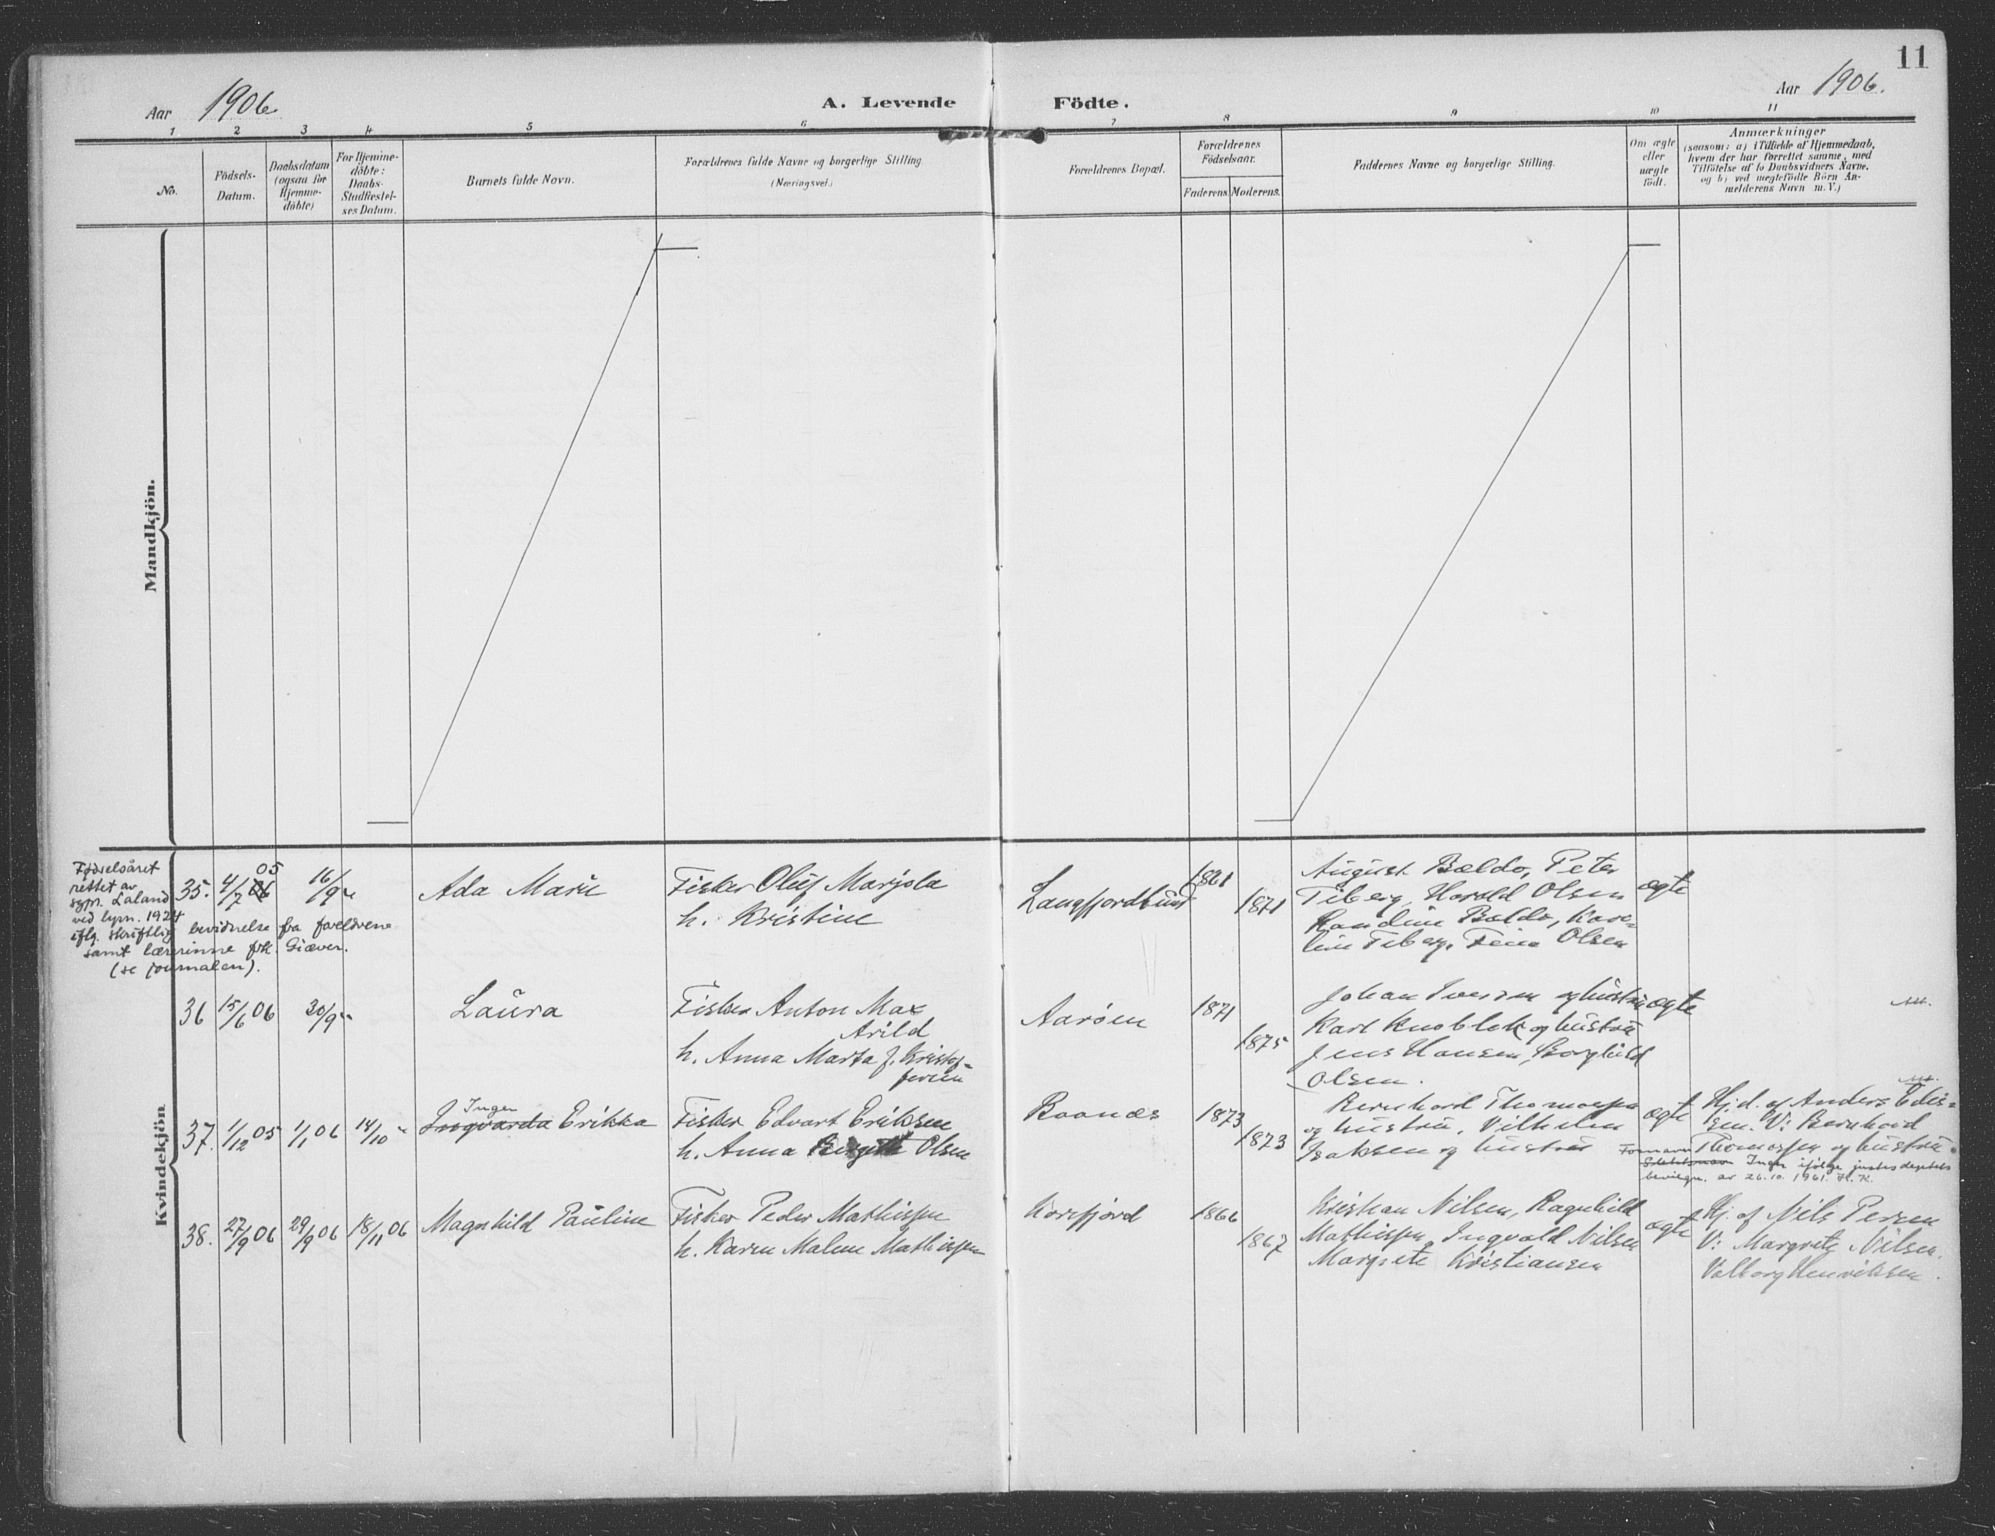 11
Aar 1906.
A. Levende Födte.
Aar 1906.
1 2 3 4 5 6 7 8 9 10 11
No.
Födsels-
Datum.
Daabsdatum
(ogsaa for
Hjemme-
döbte)
For Hjemme-
döbte:
Daabs-
Stadfæstel-
ses Datum.
Barnets fulde Navn.
Forældrenes fulde Navne og borgerlige Stilling
(Næringsvei.)
Forældrenes Bopæl.
Forældrenes
Födselsaar.
Faderens. Moderens.
Faddernes Navne og borgerlige Stilling.
Om ægte
eller
uægte
födt.
Anmærkninger
(saasom: a) i Tilfælde af Hjemmedaab,
hvem der har forrettet samme, med
Tilföielse af to Daabsvidners Navne,
og b) ved uægtefödte Börn An-
melderens Navn m. V.)
Mandkjön.
Kvindekjön.
Fødselsåret
rettet av
sypr. Laland
ved lysn. 1924
iflg. skriftlig bevidnelse fra foreldrene
samt lærerinne frk. Giæver.
(se journalen).
35. 4/7 06 05
16/9 "
Ada Marie
Fisker Oluf Marjola
h. Kristine
Langfjordbund
1861
1871
August Bældo, Peter
Tiberg, Harald Olsen
Randine Bældo, Kare-
line Tiberg, Fina Olsen
ægte
36 15/6 06
30/9 "
Laura
Fisker Anton Max
Arild
h. Anna Marta f. Kristof-
fersen
Aarøen
1871
1875
Johan Iversen og hustru
Karl Knoblok og hustru
Jens Hansen, Borghild
Olsen.
ægte
37. 1/12 05
1/1 06
14/10 "
Inger
Ingvarda Erikka
Fisker Edvart Eriksen
h. Anna Birgitte Olsen
Boanæs
1873
1873
Bernhard Thomassen
og hustru, Vilhelm
Isaksen og hustru
ægte
Hj.d. af Anders Edis-
sen. V: Bernhard
Thomassen og hustru.
Fornavn
Inger ifølge justisdeptets
bevilgn. av 26.10.1961. H.K.
38. 27/9 06
29/9 06
18/11 06
Magnhild Pauline
Fisker Peder Mathissen
h. Karen Malene Mathissen
Korsfjord
1866
1867
Kristian Nilsen, Ragnhild
Mathissen, Ingvald Nilsen
Margrete Kristiansen
ægte
Hj. af Nils Persen
V: Margrete Nilsen.
Valborg Henriksen.